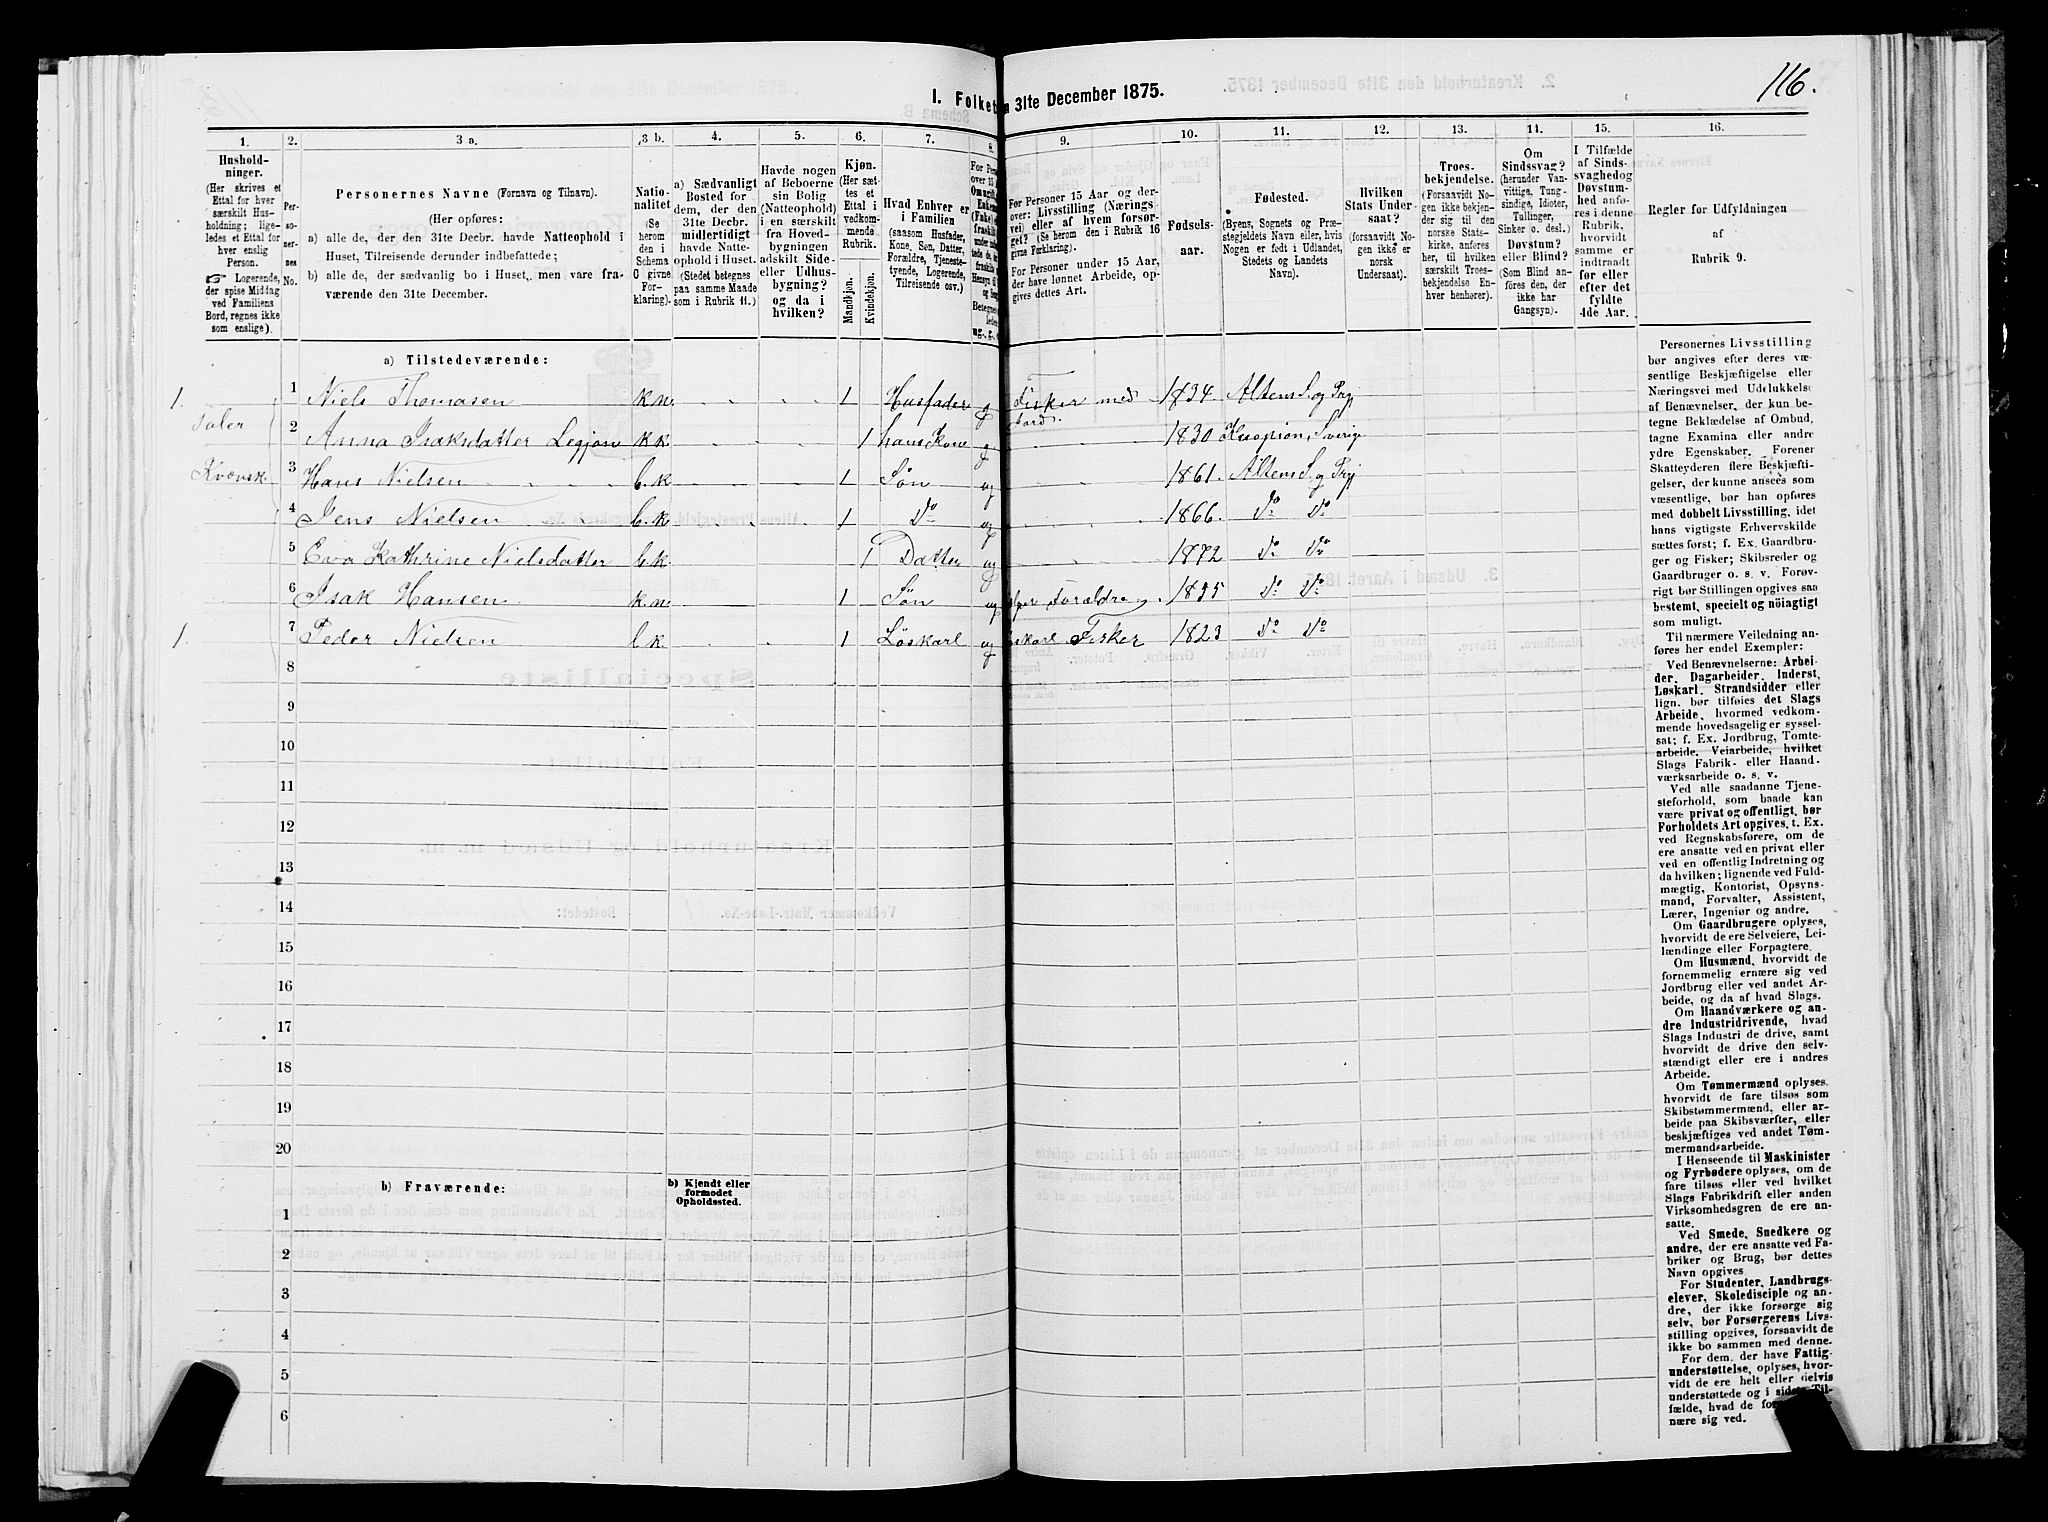 116.
I. Folket
n 31te December 1875.
1.
2.
3 a.
3 b.
4.
5.
6.
7.
8.
9.
10.
11.
12.
13.
14.
15.
16.
Hushold-
ninger.
(Her skrives et
Ettal for hver
særskilt Hus-
holdning; lige-
ledes et Ettal for
hver enslig
Person.
☞ Logerende,
der spise Middag
ved Familiens
Bord, regnes ikke
som enslige).
Per-
so-
ner-
nes
No.
Personernes Navne (Fornavn og Tilnavn).
(Her opføres:
a) alle de, der den 31te Decbr. havde Natteophold i
Huset, Tilreisende derunder indbefattede;
b) alle de, der sædvanlig bo i Huset, men vare fra-
værende den 31te December.
Natio-
nalitet
(Se
herom
den i
Schema
C givne
For-
klaring).
a) Sædvanligt
Bosted for
dem, der den
31te Decbr.
midlertidigt
havde Natte-
ophold i Huset.
(Stedet betegnes
paa samme Maade
som i Rubrik 11.)
Havde nogen
af Beboerne
sin Bolig
(Natteophold)
i en særskilt
fra Hoved-
bygningen
adskilt Side-
eller Udhus-
bygning?
og da i
hvilken?
Kjøn.
(Her sæt-
tes et
Ettal i
vedkom-
mende
Rubrik.
Mandkjøn.
Kvindekjøn.
Hvad Enhver er
i Familien
(saasom Husfader,
Kone, Søn, Datter,
Forældre, Tjeneste-
tyende, Logerende,
Tilreisende osv.)
For Personer 15 Aar og der-
over: Livsstilling (Nærings
vei) eller af hvem forsør-
get? (Se herom den i Rubrik 16
givne Førklaring).
For Personer under 15 Aar,
der have lønnet Arbeide, op-
gives dettes Art.
Fødsels-
aar.
Fødested.
(Byens, Sognets og Præ-
stegjeldets Navn eller, hvis
Nogen er født i Udlandet,
Stedets og Landets
Navn).
Hvilken
Stats Under-
saat?
(forsaavidt No-
gen ikke er
norsk
Undersaat).
Troes-
bekjendelse.
(Forsaavidt No-
gen ikke bekjen-
der sig til den
norske Stats-
kirke, anføres
her, til hvilken
særskilt Troes-
bekjendelse En-
hver henhører).
Om
Sindssvag?
(herunder Van-
vittige, Tung-
sindige, Idioter,
Tullinger,
Sinker o. desl.)
Døvstum?
eller Blind?
(Som Blind an-
føres den, der
ikke har
Gangsyn).
I Tilfælde
af Sinds-
svaghed og
Døvstum-
hed anfø-
res i denne
Rubrik,
hvorvidt
samme er
indtraadt
før eller
efter det
fyldte
4de Aar.
Regler for Udfyldningen
af
Rubrik 9.
a) Tilstedeværende:
1. 1 Niels Thomasen k.n. 1 Husfader g Fisker med Jord. 1834. Altens S. og Prgj
Taler
2 Anna Isaksdatter Legjon k.k. 1 hans Kone g 1830 Kuopion, Sverige
Kvænsk.
3 Hans Nielsen b.k 1 Søn ug 1861. Altens S. og Prgj
4 Jens Nielsen b.k 1 Do ug 1866. Do Do
5 Eva Kathrine Nielsdatter b.k. 1 Datter ug 1872 Do Do
6 Isak Hansen k.n. 1 Søn ug Forældre. Do Do
1. 7 Peder Nielsen b.k. 1 Löskarl ug Fisker 1823 Do Do
8
9
10
11
12
13
14
15
16
17
18
19
20
b) Fraværende:
b) Kjendt eller
formodet
Opholdssted.
1
2
3
4
5
6
Personernes Livsstilling
bør angives efter deres væ-
sentlige Beskjæftigelse eller
Næringsvei med Udelukkelse
af Benævnelser, der kun be-
tegne Beklædelse af Ombud,
tagne Examina eller andre
ydre Egenskaber. Forener
Skatteyderen flere Beskjæfti-
gelser, der kunne ansees som
væsentlige, bør han opføres
med dobbelt Livsstilling, idet
hans vigtigste Erhvervskilde
sættes først; f. Ex. Gaardbru-
ger og Fisker; Skibsreder og
Gaardbruger o. s. v. Forøv-
rigt bør Stillingen opgives saa
bestemt, specielt og nöiagtigt
som muligt.
Til nærmere Veiledning an-
føres her endel Exempler:
Ved Benævnelserne: Arbei-
der, Dagarbeider, Inderst,
Løskarl, Strandsidder eller
lign. bør tilføies det Slags
Arbeide, hvormed vedkom-
mende hovedsagelig er syssel-
sat; f. Ex. Jordbrug, Tomte-
arbeide, Veiarbeide, hvilket
Slags Fabrik- eller Haand-
værksarbeide o. s. v.
Ved alle saadanne Tjene-
steforhold, som baade kan
være privat og offentligt, bør
Forholdets Art opgives, t. Ex.
ved Regnskabsførere, om de
ere ansatte ved en privat eller
ved en offentlig Indretning og
da hvilken; lignende ved Fuld-
mægtig, Kontorist, Opsyns-
mand, Forvalter, Assistent,
Lærer, Ingeniør og andre.
Om Gaardbrugere oplyses,
hvorvidt de ere Selveiere, Lei-
lændinge eller Forpagtere.
Om Husmænd, hvorvidt de
fornemmelig ernære sig ved
Jordbrug eller ved andet Ar-
beide, og da af hvad Slags.
Om Haandværkere og an-
dre Industridrivende, hvad
Slags Industri de drive, samt
hvorvidt de drive den selv-
stændigt eller ere i andres
Arbeide.
Om Tømmermænd oplyses,
hvorvidt de fare tilsøs som
Skibstømmermænd, eller ar-
beide paa Skibsværfter, eller
beskjæftiges ved andet Tøm-
mermandsarbeide.
I Henseende til Maskinister
og Fyrbødere oplyses, om de
fare tilsøs eller ved hvilket
Slags Fabrikdrift eller anden
Virksomhedsgren de ere an-
satte.
Ved Smede, Snedkere og
andre, der ere ansatte ved Fa-
briker og Brug, bør dettes
Navn opgives
For Studenter, Landbrugs-
elever, Skoledisciple og an-
dre, der ikke forsørge sig
selv, bør Forsørgerens Livs-
stilling opgives, forsaavidt de
ikke bo sammen med denne.
For dem, der have Fattig-
understøttelse, oplyses, hvor-
vidt de ere helt eller delvis
understøttede og i sidste Til-
fælde, hvad de
nære sig ved.